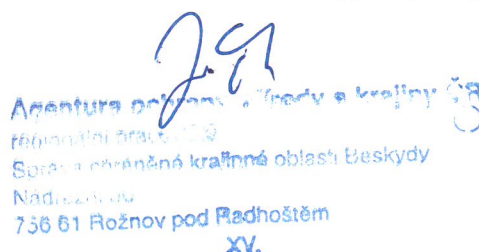 Agentura ochrany přírody a krajiny ČR
regionální pracoviště
Správa chráněné krajinné oblasti Beskydy
756 61 Rožnov pod Radhoštěm
XV.